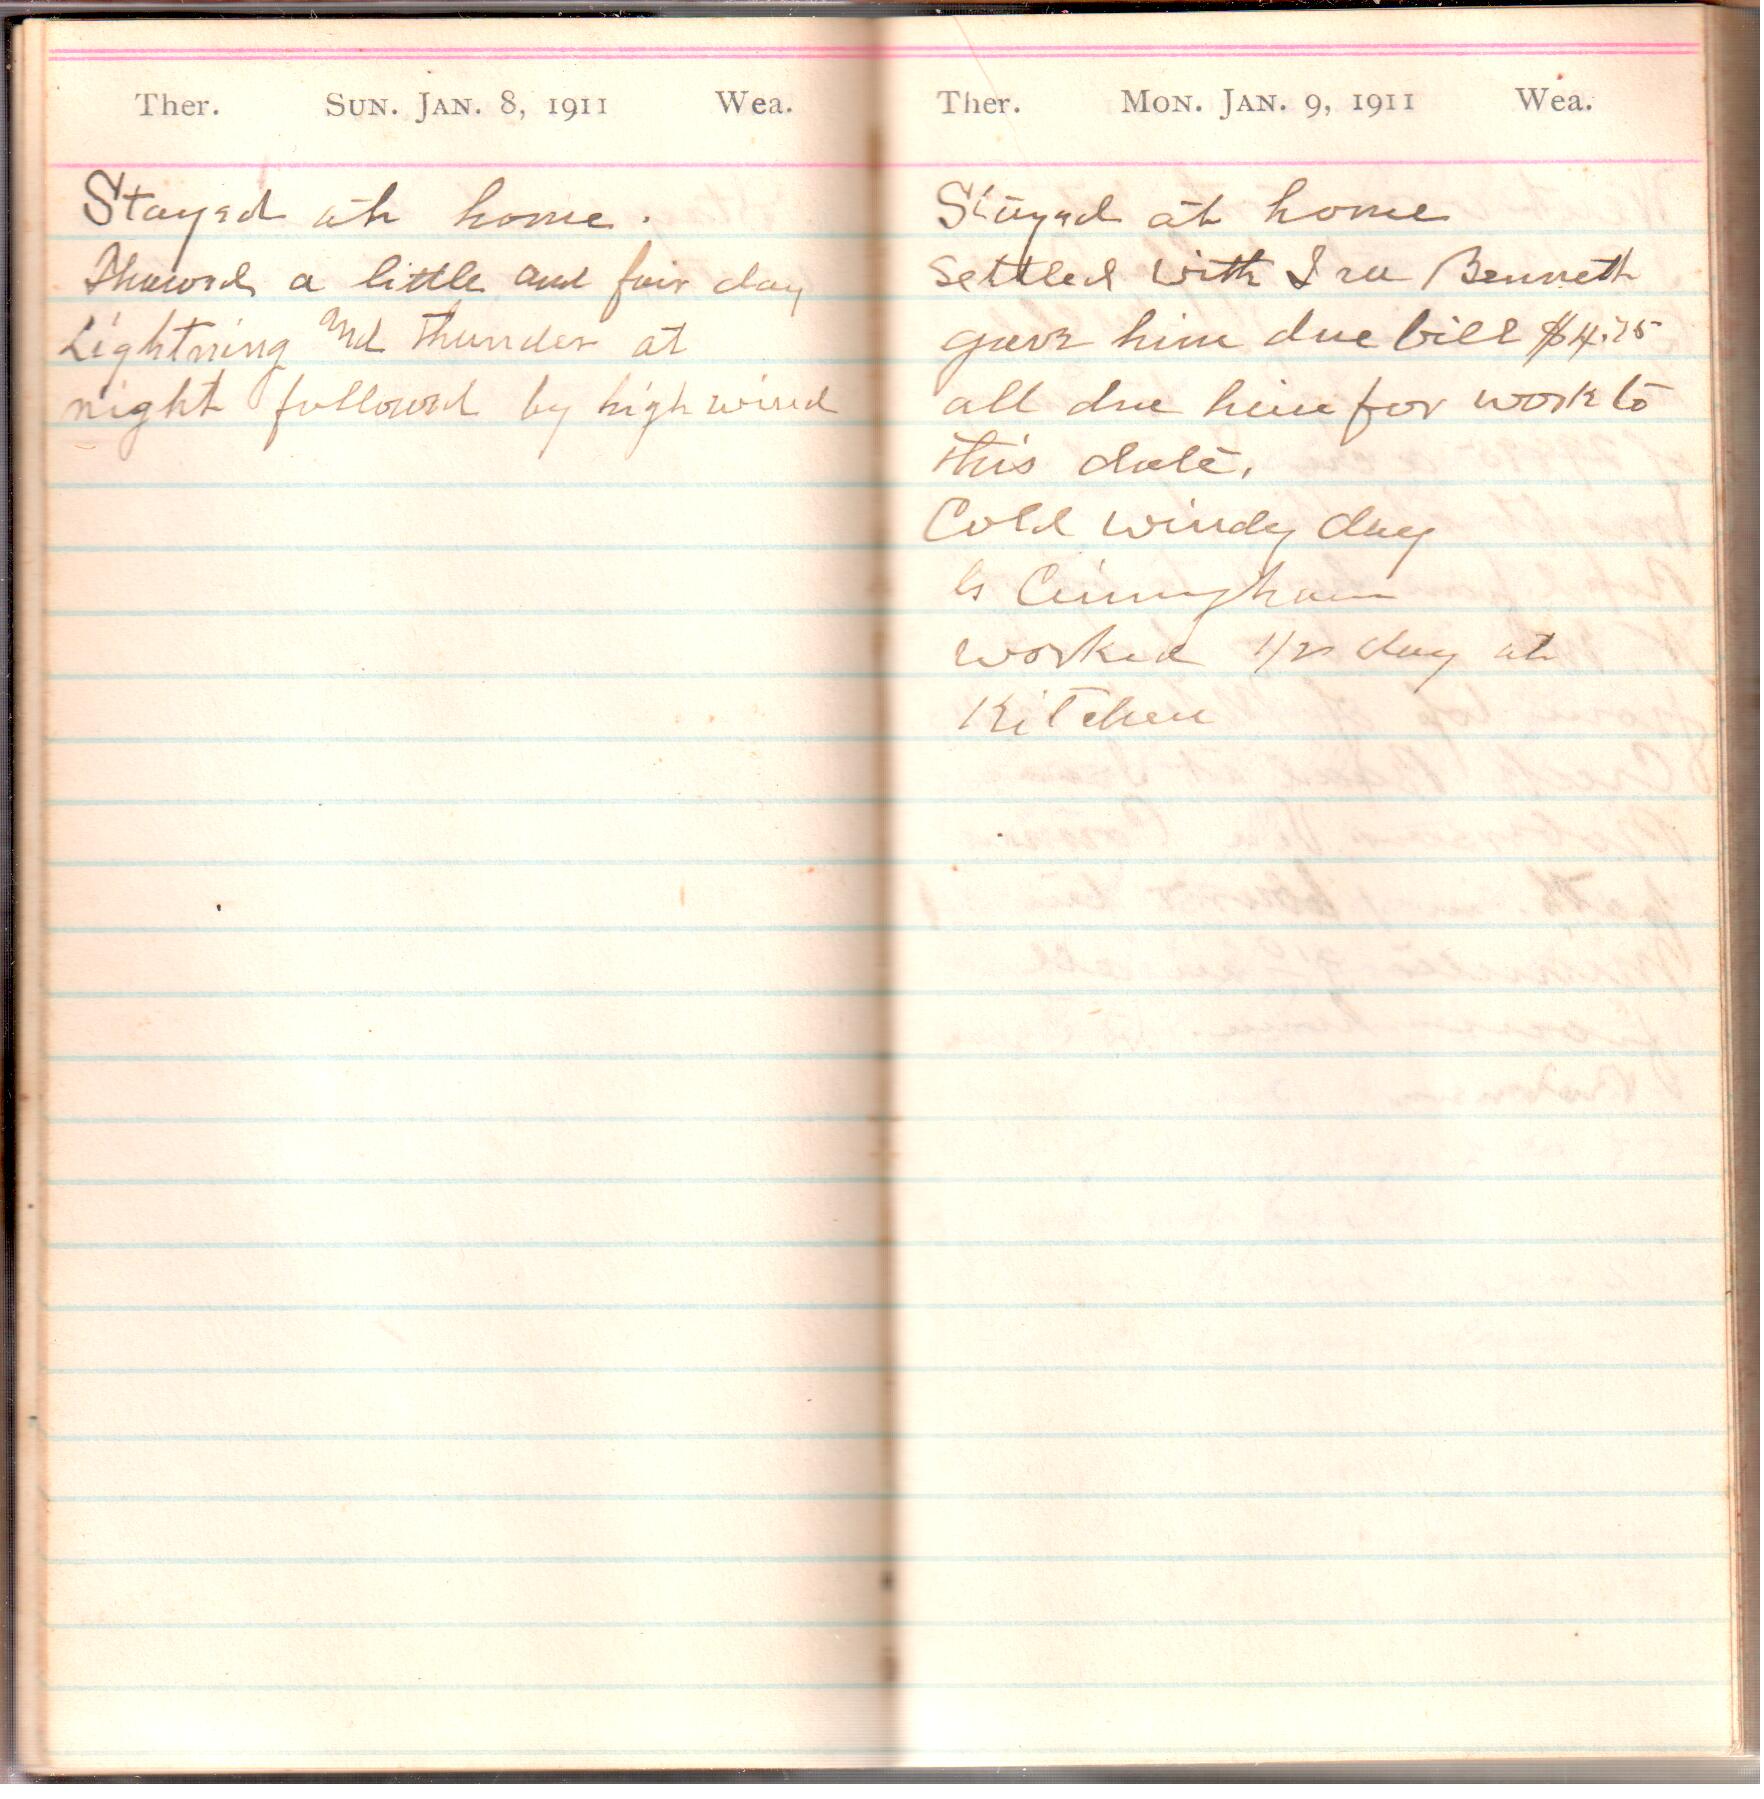 Ther. Sun. Jan. 8, 1911 Wea.
Stayed at home.
Thawed a little and fair day
Lightning and thunder at
night followed by high wind
Ther. Mon. Jan. 9, 1911 Wea.
Stayed at home
settled with Ira Bennett
gave him due bill $4.75
all due him for work to
this date.
Cold windy day
Cuningham
worked 1/2 day at
Kitchen